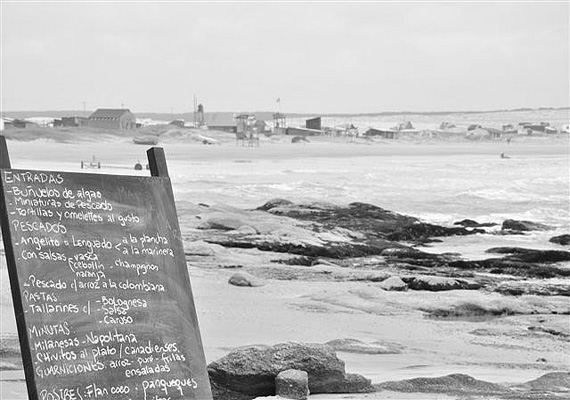 ENTRADAS
-Buñuelos de algao
-Miniaturas de Pescado
-Tortillas y omelettes al gusto
PESCADOS
-Angelito o Lenguado a la plancha
a la marinera
-Con salsas vasca
cebollin - champignon
naranja
-Pescado c/arroz a la colombiana
PASTAS
-Tallarines c/ - Bolognesa
- Salsa
- Caruso
MINUTAS
-Milanesas - Napolitana
-Chivitos al plato/canadienses
GUARNICIONES arroz - puré - fritas
ensaladas
POSTRES: Flan coco . panqueques